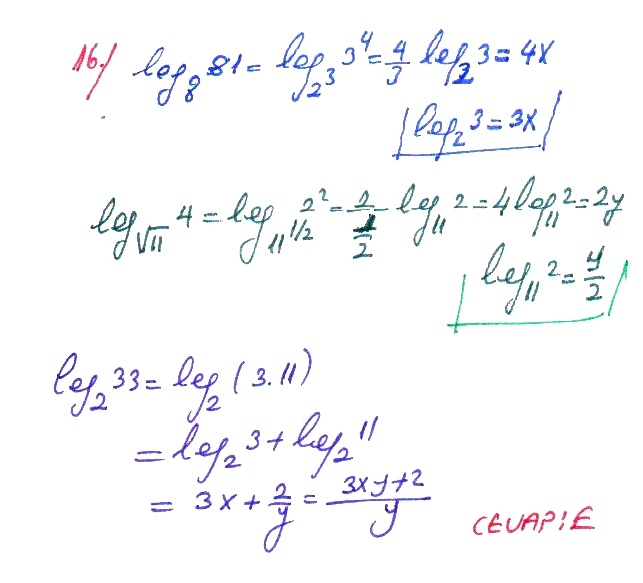 16.) log₈ 81 = log₂³ 3⁴ = 4/3 log₂ 3 = 4x
log₂ 3 = 3x
log√11 4 = log₁₁^1/2 2² = 2/(1/2) log₁₁ 2 = 4 log₁₁ 2 = 2y
log₁₁ 2 = y/2
log₂ 33 = log₂ (3.11)
= log₂ 3 + log₂ 11
= 3x + 2/y = (3xy+2)/y
CEVAP:E